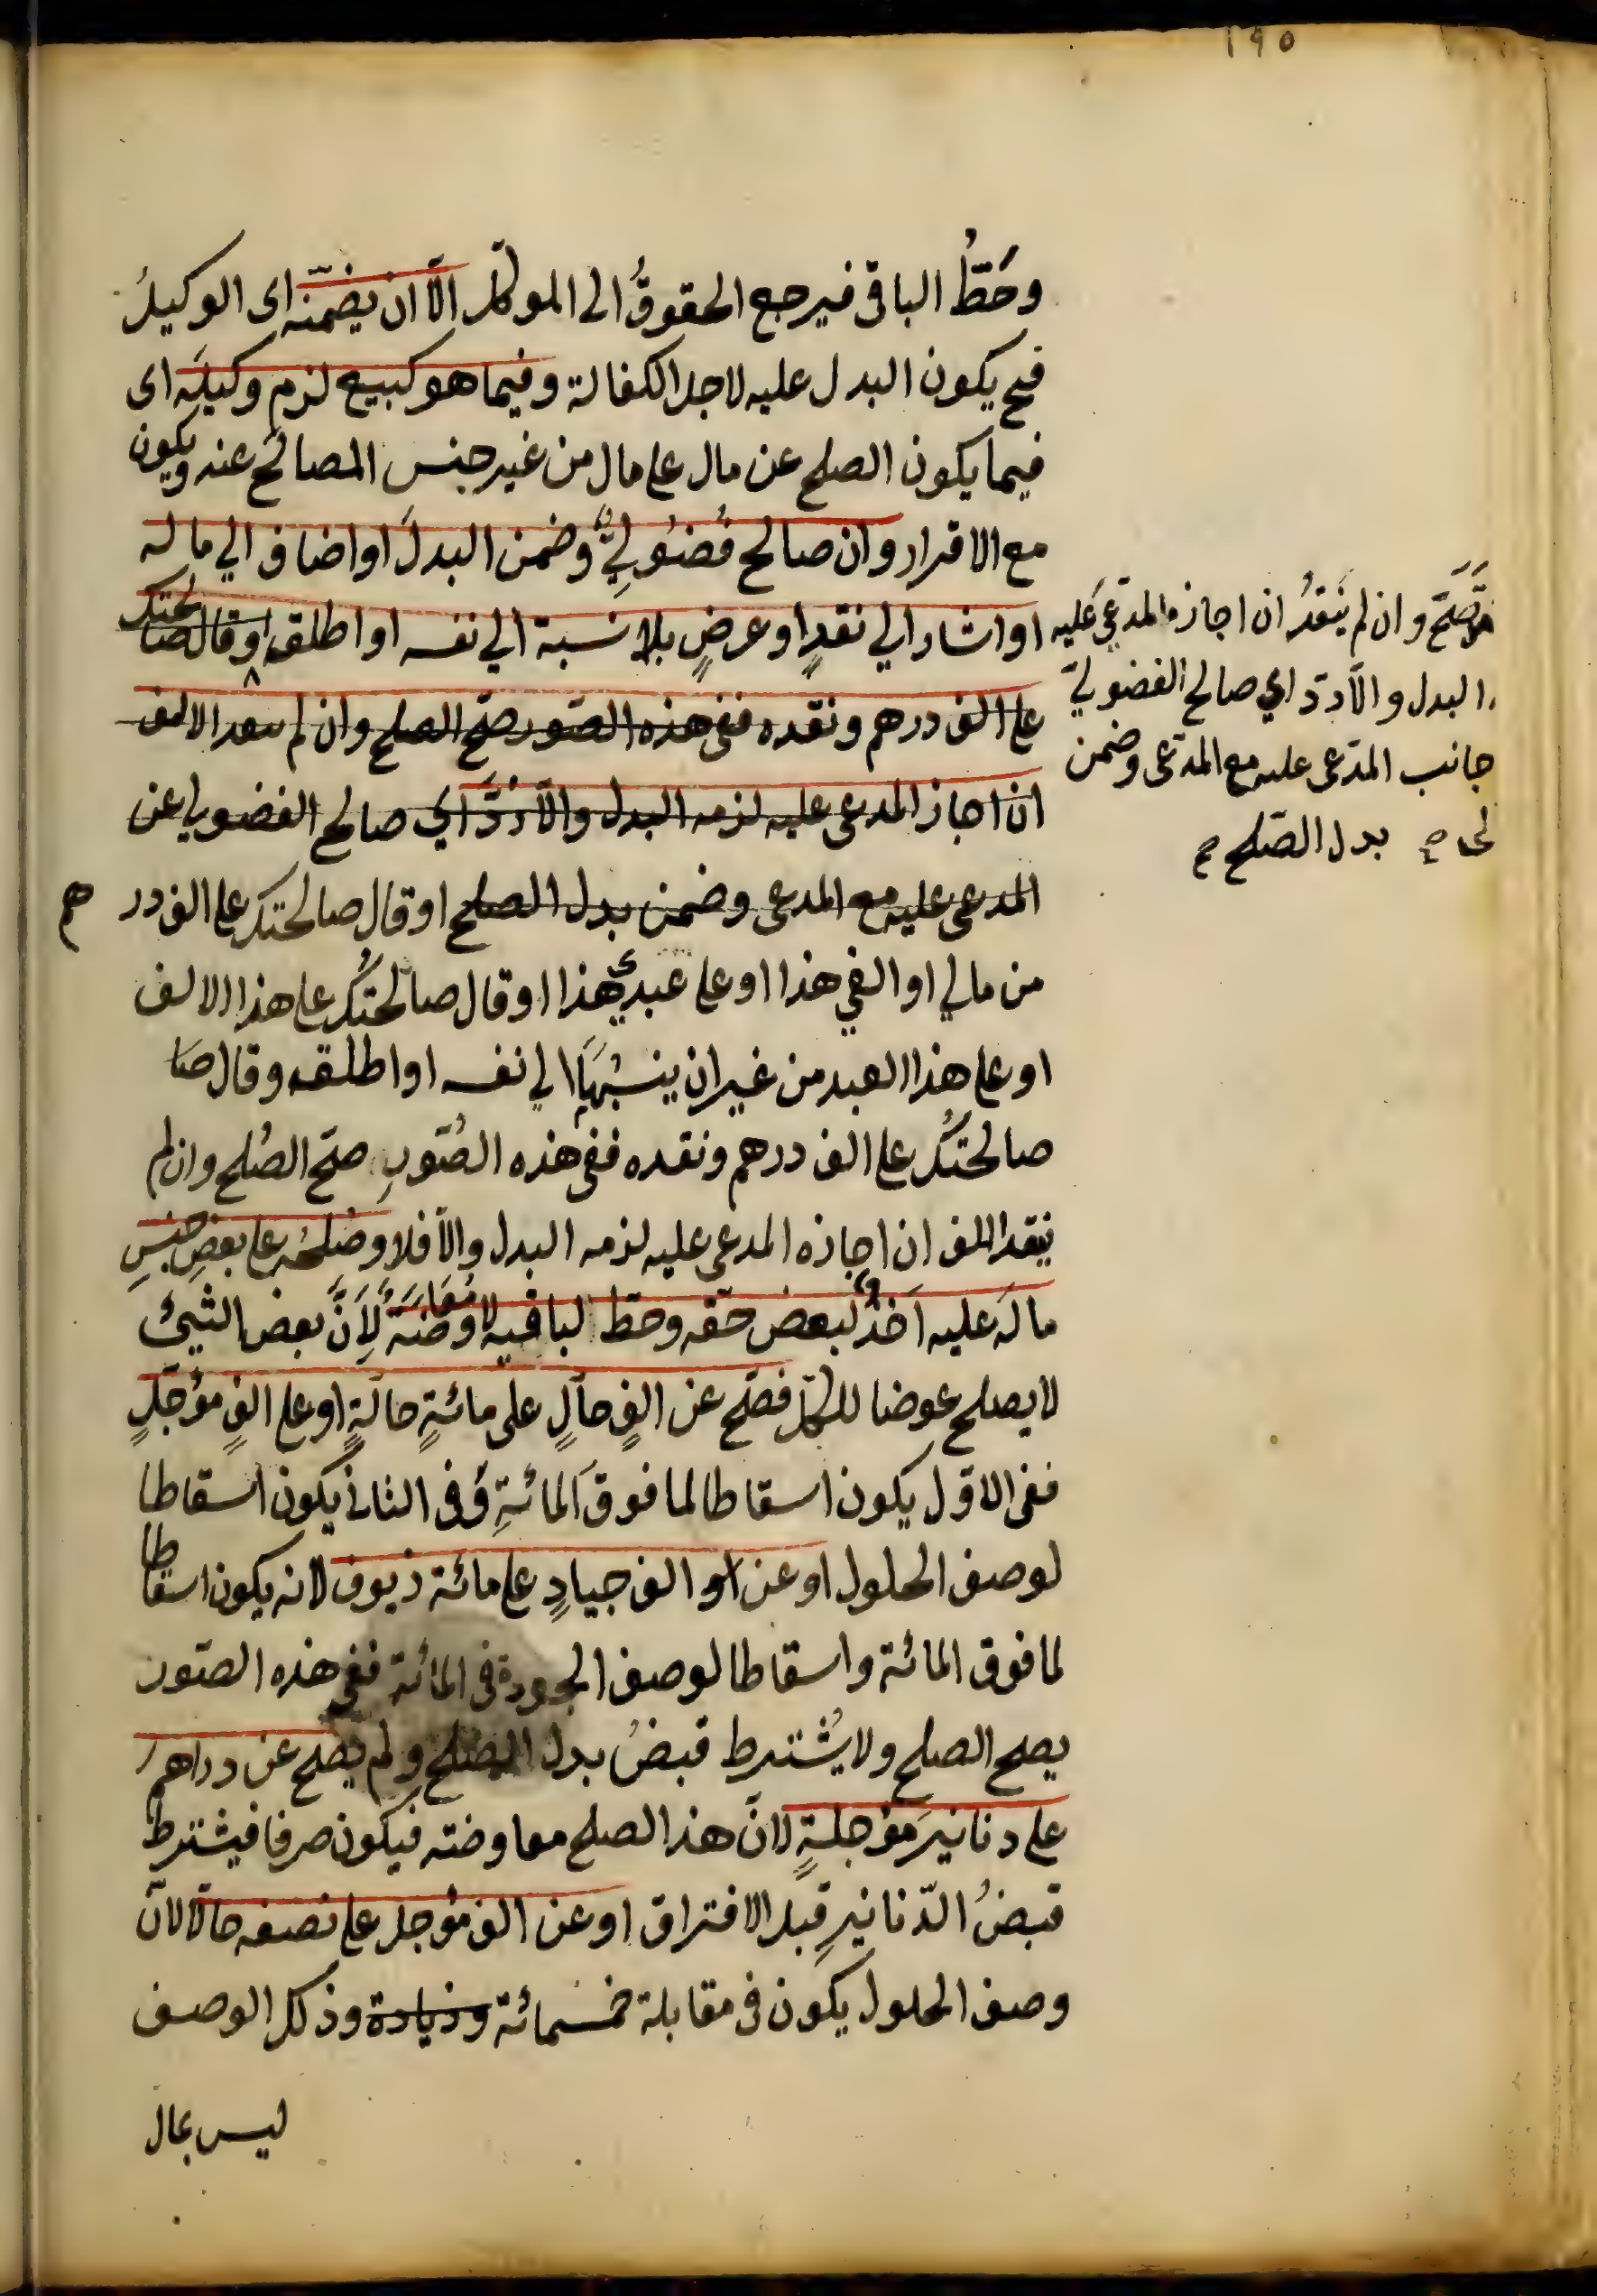 ١٩٥
وحَطُّ الباقى فيرجع الحقوقُ الى الموكّل الّا ان يضمنّه اى الوكيلُ
فح يكون البدل عليه لاجل الكفالة وفيما هو كبيع لزم وكيلَه اى
فيما يكون الصلح عن مال على مال من غير جنس المصالَح عنه ويكون
مع الاقرار وان صالح فُضُوليٌّ وضمن البدلَ او اضاف الي ماله
او اشار الي نقدٍ او عرضٍ بلا نسبة الي نفسه او اطلق او قال صالحتك
على الف درهم ونقده ففى هذه الصّور صحّ الصلح وان لم ينقد الالف
ان اجاز المدعى عليه لزمه البدل والّا رُدَّ اي صالح الفضولي عن
المدعى عليه مع المدعى وضمن بدل الصلح او قال صالحتك على الف درهم
من مالي او الفي هذا او على عبدي هذا او قال صالحتُك على هذا الالف
او على هذا العبد من غير ان ينسُبَهَا الي نفسه او اطلقه وقال صا
صالحتُك على الف درهم ونقده ففى هذه الصُّوَرِ صحّ الصُلح وان لم
ينقد الالف ان اجازه المدعى عليه لزمه البدل والّا فلا وصُلحُه على بعضِ جنسِ
مالَه عليه اَخذٌ لبعض حقّه وحطّ لباقيه لا مُعَاوضَةٌ لِاَنَّ بعض الشيئ
لا يصلح عوضا للكلّ فصَحّ عن الفٍ حالٍّ على مائةٍ حالّةٍ او على الفٍ مؤجّلٍ
ففى الاوّل يكون اسقاطا لما فوق المائةِ وفى الثانى يكون اسقاطا
لوصف الحلول او عن الف جيادٍ على مائة زيوف لانه يكون اسقاطا
لما فوق المائة واسقاطا لوصف الجودة فى المائة ففى هذه الصّور
يصح الصلح ولا يُشترط قبضُ بدل الصلح ولم يصلح عن دراهم
على دنانيرَ مؤجلةٍ لانّ هذا الصلح معاوضته فيكون صرفا فيشترط
قبضُ الدّنانيرِ قبل الافتراق او عن الف مؤجل على نصفه حالّا لانّ
وصف الحلول يكون فى مقابلة خمسمائة وزيادة وذلك الوصف
ليس بمال
صَحَّ وان لم يَنقدُ ان اجازه المدّعى عَليه
البدل والّا ردّ اي صالح الفضوليّ
جانب المدّعى عليه مع المدّعى وضمن
بدل الصّلح صح